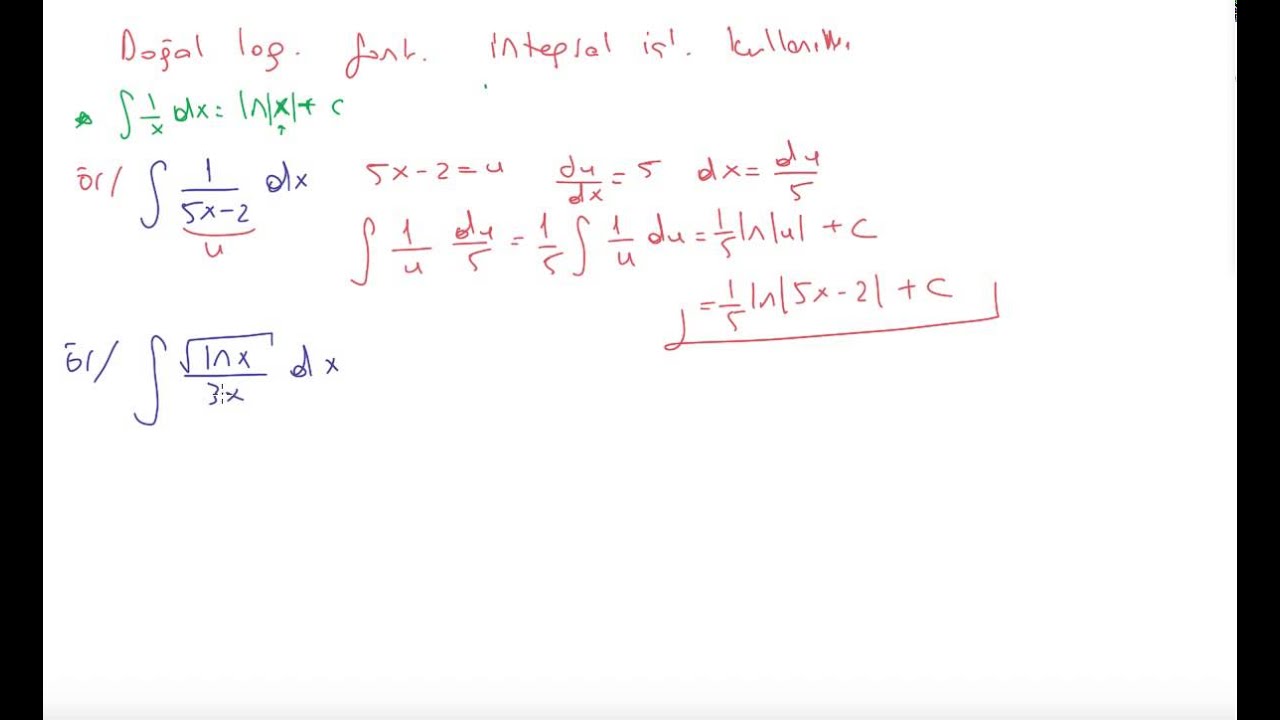 Doğal log. fonk. integral işl. kullanılm.
* ∫ 1/x dx = ln|x| + c
Ör/ ∫ 1/(5x-2) dx   5x-2=u   du/dx = 5   dx = du/5
u
∫ 1/u du/5 = 1/5 ∫ 1/u du = 1/5 ln|u| + c
= 1/5 ln|5x-2| + c
Ör/ ∫ √(lnx)/3x dx